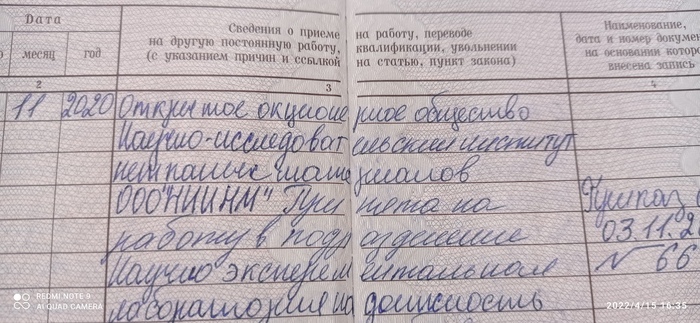 Дата
Сведения о приеме на работу, переводе
на другую постоянную работу, квалификации, увольнении
(с указанием причин и ссылкой на статью, пункт закона)
Наименование,
дата и номер докумен
на основании которо
внесена запись
месяц
год
2
3
4
11 2020 Открытое акционерное общество
Научно-исследовательский институт
материалов
ООО "НИИНМ" Принята на
работу в подразделение
Научно экспериментальная
лаборатория на должность
Приказ
03.11.2
№ 66
REDMI NOTE 9
AI QUAD CAMERA
2022/4/15 16:35